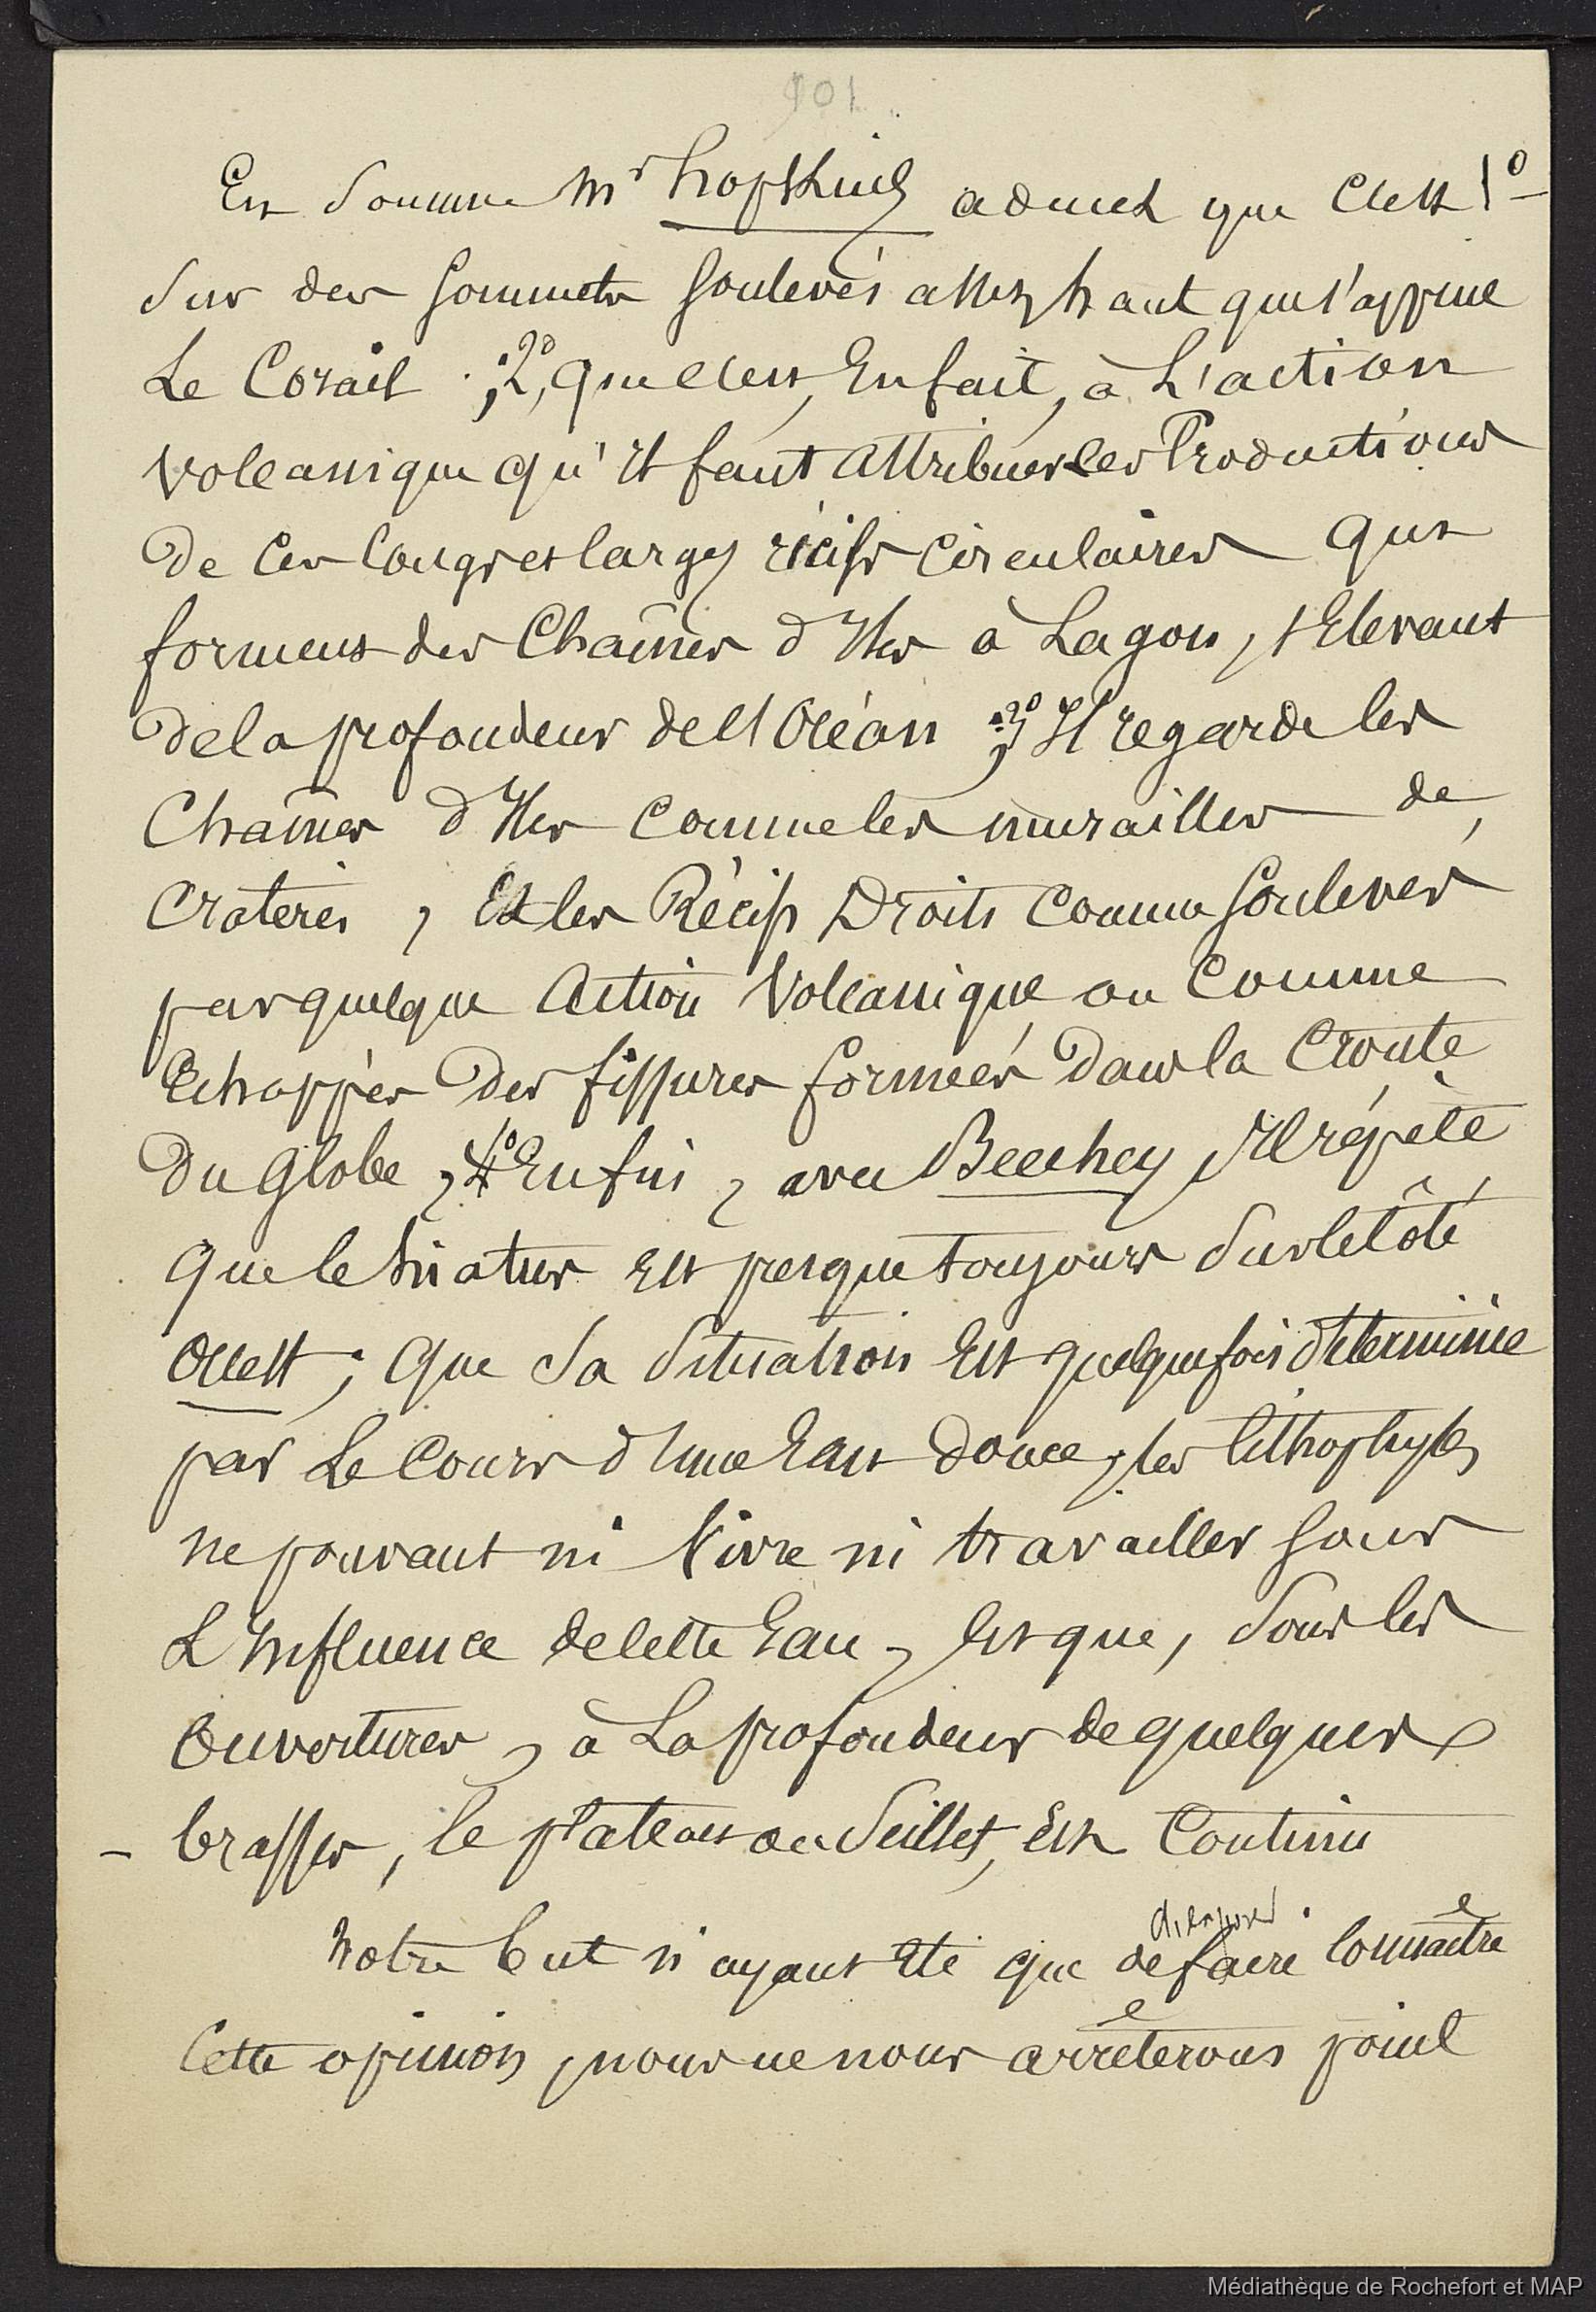 101
En Somme Mr hopkins admet que c'est 1°
Sur des Sommets Soulevés assez haut que s'appuie
Le Corail ; 2°, que c'est, En fait, à L'action
volcanique qu'il faut attribuer les Productions
De Ces longs et larges récifs circulaires qui
forment des Chaînes d'Iles à Lagon, s'Elevant
De la profondeur de l'Océan ; 3° Il regarde les
Chaînes d'Iles comme les murailles de
Cratères, Et les Récifs Droits comme soulevés
par quelque Action Volcanique ou comme
Echappés Des fissures formées Dans la Croute
Du Globe, 4° Enfin, avec Beechey, Il répète
Que le hiatus Est presque toujours Sur le Côté
Ouest ; Que Sa Situation Est quelquefois déterminée
par Le Cours d'une Eau Douce, les lithophytes
ne pouvant ni Vivre ni travailler sous
L'Influence de cette Eau, Et que, Sous les
Ouvertures, à La profondeur de quelques
- brasses, le plateau ou Seillet, Est Continu
d'exposer
Notre but n'ayant Eté que de faire Connaître
Cette opinion, nous ne nous arrêterons point
Médiathèque de Rochefort et MAP